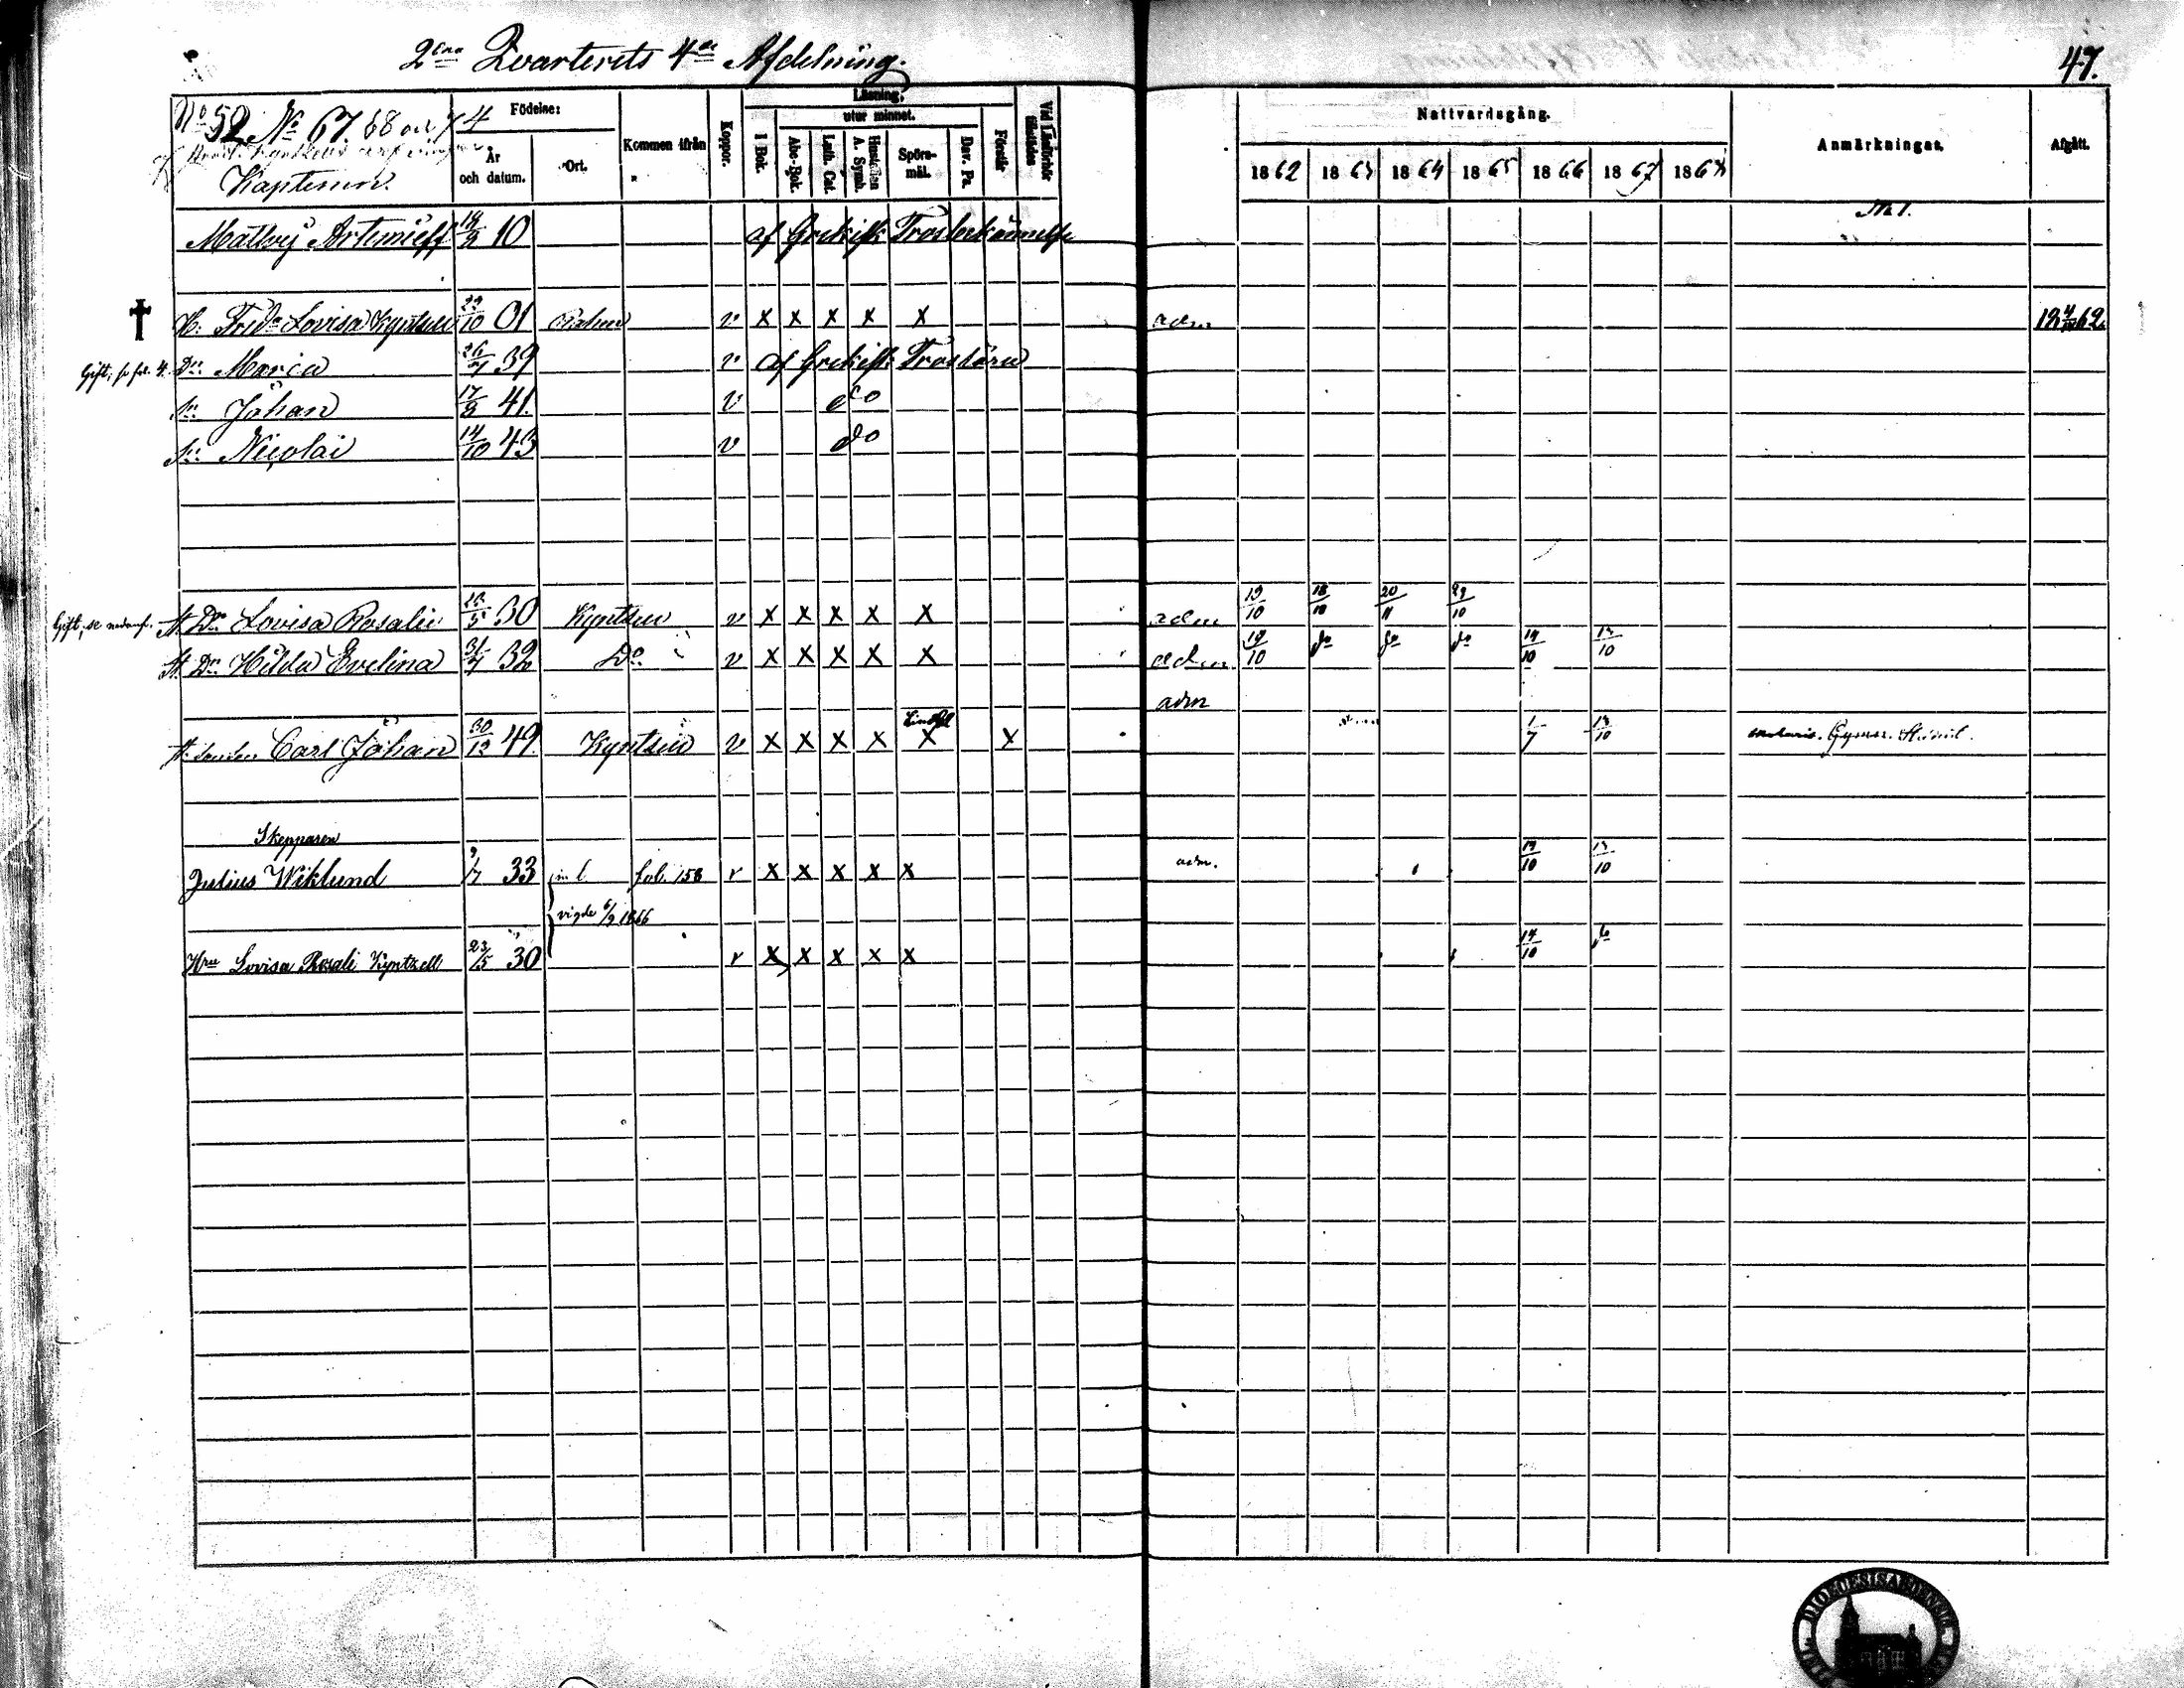 2dra Qvarterets 4de Afdelning.
47.
No 52 No 67 68 och 74
Kaptenen
Födelse:
År och datum.
Ort.
Kommen ifrån
Koppor.
Läsning,
utur minnet.
I Bok.
Abc-Bok.
Luth. Cat.
Hustaflan A. Symb.
Spörsmål.
Dav. Ps.
Förstår
Vid Läsförhör tillstädes
Nattvardsgång.
1862 1863 1864 1865 1866 1867 1868
Anmärkningar.
Afgått.
Mattvej Artemieff 18/9 10 af Grekisk Trosbekännelse
† H. Fredr. Lovisa Kyntzell 22/10 01 v x x x x x adm 62
Gift, se fol. 4. Dr Maria 26/7 39 v af Grekisk Troslära
Sn Johan 17/8 41. v do
Sn Nicolai 14/10 43 v do
Gift, se nedanf. St. Dr Lovisa Rosalie 23/5 30 Kyntzell v x x x x x adm 19/10 18/10 20/11 29/10
St. Dr Hilda Evelina 31/7 32 Do v x x x x x adm 19/10 do do do 14/10 13/10
adm
Carl Johan 30/12 49. Kyntzell v x x x x x x 1/7 13/10 Gymn.
Skepparen
Julius Wiklund 9/7 33 fol. 158 v x x x x x adm. 14/10 13/10
vigde 6/9 1866
Hru Lovisa Rosali Kyntzell 23/5 30 v x x x x x 14/10 do
DIOECESIS ABOENSIS